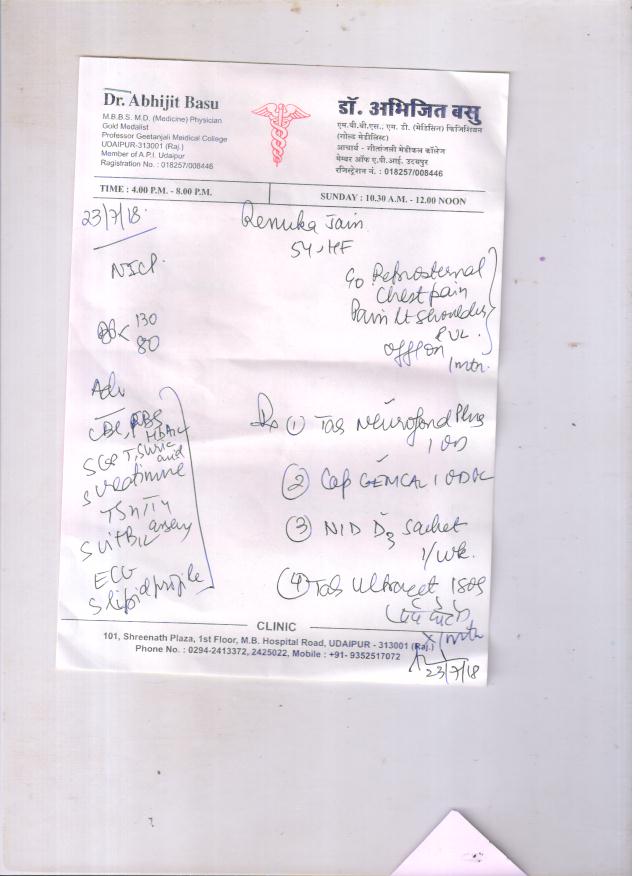 Dr. Abhijit Basu
M.B.B.S. M.D. (Medicine) Physician
Gold Medalist
Professor Geetanjali Meidical College
UDAIPUR-313001 (Raj.)
Member of A.P.I. Udaipur
Ragistration No. : 018257/008446
डॉ. अभिजित बसु
एम.बी.बी.एस., एम. डी. (मेडिसिन) फिजिशियन
(गोल्ड मेडीलिस्ट)
आचार्य - गीतांजली मेडीकल कॉलेज
मेम्बर ऑफ ए.पी.आई. उदयपुर
रजिस्ट्रेशन नं. : 018257/008446
TIME : 4.00 P.M. - 8.00 P.M.
SUNDAY : 10.30 A.M. - 12.00 NOON
23/7/18.
Renuka Jain
54
Retrosternal
Chest pain
Pain Lt Shoulder
off/on
1 mth.
130
80
Adv
CBC, RBS
HBA1C
S uric
acid
S creatinine
TSH/T4
S VitB12 assay
ECG
S lipid profile
Rx ① Tab Neurofond Plus
1 OD
② Cap GEMCAL 1 OD
③ NID D3 sachet
1/wk.
④ Tab Ultracet 1 SOS
x 1 mth
23/7/18
CLINIC
101, Shreenath Plaza, 1st Floor, M.B. Hospital Road, UDAIPUR - 313001 (Raj.)
Phone No. : 0294-2413372, 2425022, Mobile : +91- 9352517072